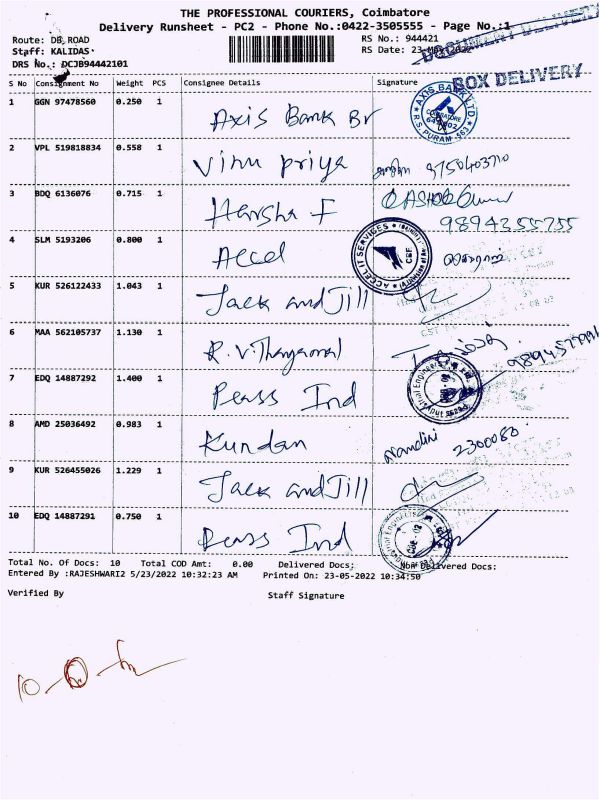 THE PROFESSIONAL COURIERS, Coimbatore
Delivery Runsheet - PC2 - Phone No.:0422-3505555 - Page No.:1
Route: DB ROAD RS No.: 944421
Staff: KALIDAS RS Date: 23-May-2022
DRS No.: DCJB94442101
DOCUMENT DELIVERY
BOX DELIVERY
S No Consignment No Weight PCS Consignee Details Signature
1 GGN 97478560 0.250 1 Axis Bank Br
AXIS BANK LTD. R.S. PURAM
2 VPL 519818834 0.558 1 Vinu priya
3 BDQ 6136076 0.715 1 Harsha F
9894355755
4 SLM 5193206 0.800 1 Accel
ACCEL IT SERVICES CBE
5 KUR 526122433 1.043 1 Jack and Jill
6 MAA 562105737 1.130 1
7 EDQ 14887292 1.400 1 Perss Ind
8 AMD 25036492 0.983 1 Kundan Nandini 2300080
9 KUR 526455026 1.229 1 Jack and Jill
10 EDQ 14887291 0.750 1 Perss Ind
Total No. Of Docs: 10 Total COD Amt: 0.00 Delivered Docs: Non Delivered Docs:
Entered By :RAJESHWARI2 5/23/2022 10:32:23 AM Printed On: 23-05-2022 10:34:50
Verified By Staff Signature